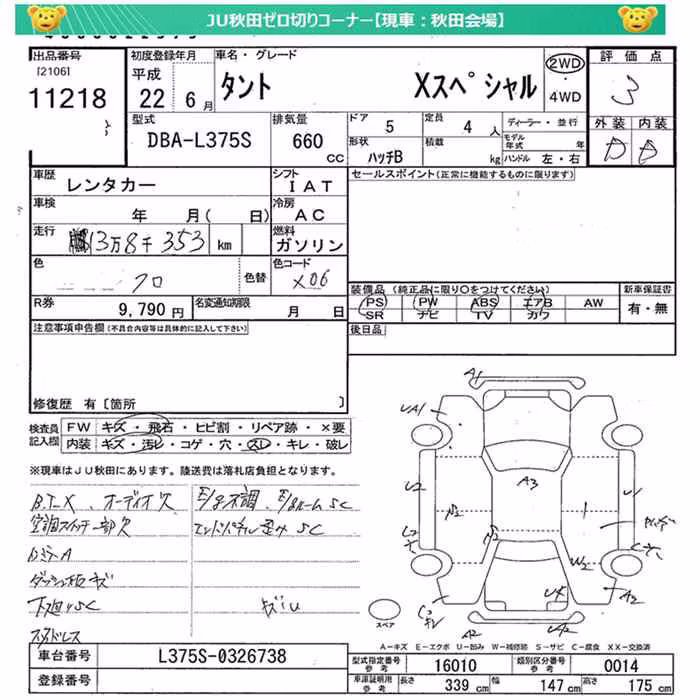 JU秋田ゼロ切りコーナー【現車：秋田会場】
出品番号 初度登録年月 車名・グレード 評価点
[2106] 平成
11218 22年6月 タント Xスペシャル 2WD ・ 4WD 3
型式 排気量 ドア 5 定員 4 人 ディーラー・並行 外装 内装
DBA-L375S 660 CC 形状 ハッチB 積載 kg モデル年式 年 ハンドル 左・右 D D
車歴 レンタカー シフト IAT セールスポイント(正常に機能するものに限ります)
車検 年 月( 日) 冷房 AC
走行 13万8千353 km 燃料 ガソリン
色 クロ 色替 色コード X06
装備品 (純正品に限り○をつけてください) 新車保証書
R券 9,790 円 名変通知期限 月 日 PS PW ABS エアB AW 有・無
SR ナビ TV カワ
注意事項申告欄(不具合内容等は具体的に記入して下さい) 後日品
修復歴 有 [箇所 ]
検査員記入欄 FW キズ・飛石・ヒビ割・リペア跡・×要
内装 キズ・汚レ・コゲ・穴・スレ・キレ・破レ
※現車はJU秋田にあります。陸送費は落札店負担となります。
B.T-X、オーディオ欠 E/g不調、E/gルームSC
空調スイッチ一部欠 エンドパネル歪みSC
DミラーA
ダッシュ板キズ
下廻りSC キズU
スタッドレス
A1
UA1
A3
U2 U1
W2
W2
A2
U4
A2
スペア
A-キズ E-エクボ U-凹み W-補修跡 S-サビ C-腐食 XX-交換済
車台番号 L375S-0326738 型式指定番号 参考 16010 類別区分番号 参考 0014
登録番号 車庫証明用 参考 長さ 339 cm 幅 147 cm 高さ 175 cm